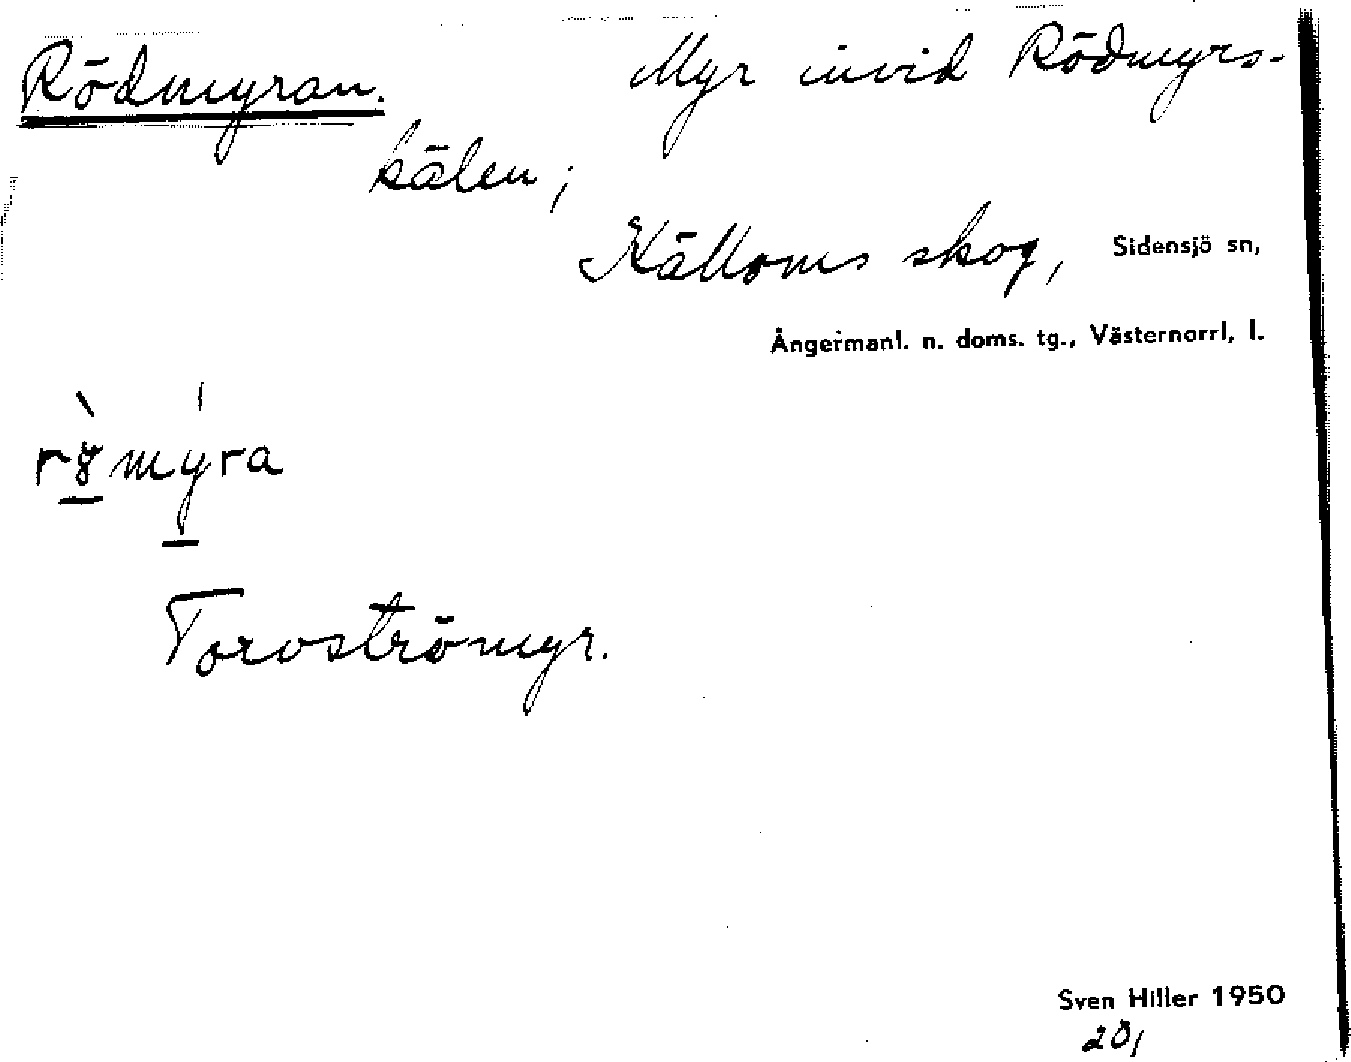 Rödmyran. Myr invid Rödmyrs-
kälen;
Källoms skog, Sidensjö sn,
Ångermanl. n. doms. tg., Västernorrl. l.
rɣ̀mýra
Torvströmyr.
Sven Hiller 1950